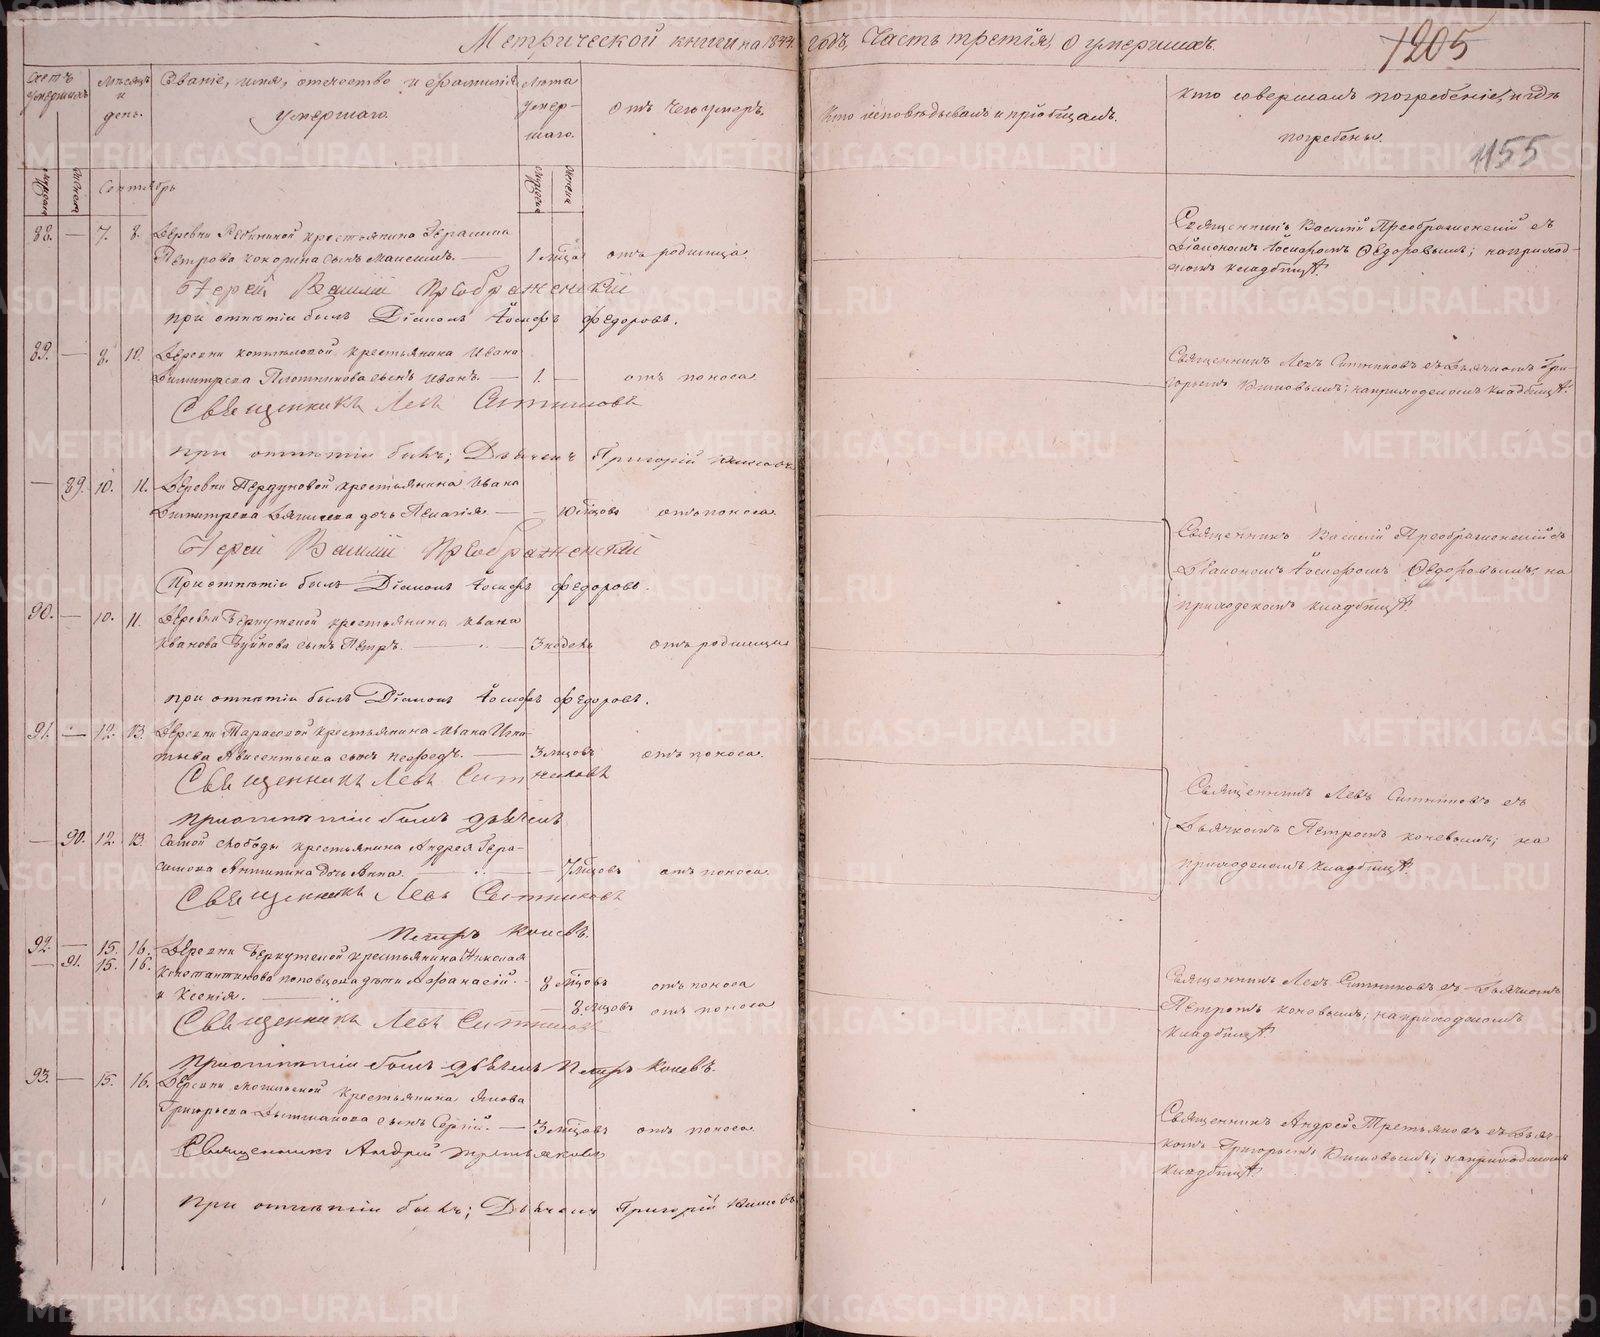 Метрической книги на 1844 годъ, Часть третія, о умершихъ.
1205
1155
Счетъ умершихъ
Мѣсяцъ и день.
Званіе, имя, отчество и фамилія
умершаго.
Лѣта умер-
шаго.
Отъ чего умеръ.
Кто исповѣдывалъ и пріобщалъ.
Кто совершалъ погребеніе, и гдѣ
погребены.
Мужеска
Женска
Сентябрь
Мужеска
Женска
88. — 7. 8. Деревни крестьянина Герасима
Петрова Кокорина сынъ Максимъ. — 1 мѣсяца отъ родимца.
Священникъ Василій Преображенскій съ
Діакономъ Іосифомъ Ѳедоровымъ; на приход-
скомъ кладбищѣ.
Іерей Василій Преображенскій
при отпѣтіи былъ Діаконъ Іосифъ Федоровъ.
89. — 8. 10. Деревни крестьянина Ивана
Димитрева Плотникова сынъ Иванъ. — 1. — отъ поноса
Священникъ Левъ Ситниковъ съ Дьячкомъ Гри-
горьемъ; на приходскомъ кладбищѣ.
Священникъ Левъ Ситниковъ
при отпѣтіи былъ; Дьячекъ Григорій
— 89. 10. 11. Деревни крестьянина Ивана
Димитрева дочь Пелагія. — 10 мѣсяцовъ отъ поноса
Священникъ Василій Преображенскій съ
Діакономъ Іосифомъ Ѳедоровымъ; на
приходскомъ кладбищѣ.
Іерей Василій Преображенскій
При отпѣтіи былъ Діаконъ Іосифъ Федоровъ.
90. — 10. 11. Деревни Беркутской крестьянина Ивана
Иванова сынъ Петръ. — 3 недѣль отъ родимца
при отпѣтіи былъ Діаконъ Іосифъ Федоровъ.
91. — 12. 13. Деревни Тарасовой крестьянина Ивана Игна-
тьева сынъ — 3 мѣсяцовъ отъ поноса.
Священникъ Левъ Ситниковъ
Священникъ Левъ Ситниковъ съ
Дьячкомъ Петромъ Коневымъ; на
приходскомъ кладбищѣ.
при отпѣтіи былъ дьячекъ
— 90. 12. 13. Самой слободы крестьянина Андрея Гера-
симова Антипина дочь Анна. — 7 мѣсяцовъ отъ поноса.
Священникъ Левъ Ситниковъ
Петръ Коневъ.
92. — 15. 16. Деревни Беркутской крестьянина Николая
— 91. 15. 16. Константинова дѣти Афанасій. 8 мѣсяцовъ отъ поноса
и Ксенія. — 8 мѣсяцовъ отъ поноса
Священникъ Левъ Ситниковъ съ Дьячкомъ
Петромъ Коневымъ; на приходскомъ
кладбищѣ.
Священникъ Левъ Ситниковъ
при отпѣтіи былъ дьячекъ Петръ Коневъ.
93. — 15. 16. Деревни крестьянина Якова
Григорьева сынъ Сергій. — 3 мѣсяцовъ отъ поноса
Священникъ Андрей Третьяковъ съ Дьяч-
комъ Григорьемъ; на приходскомъ
кладбищѣ.
Священникъ Андрей Третьяковъ
При отпѣтіи былъ; Дьячекъ Григорій
METRIKI.GASO-URAL.RU